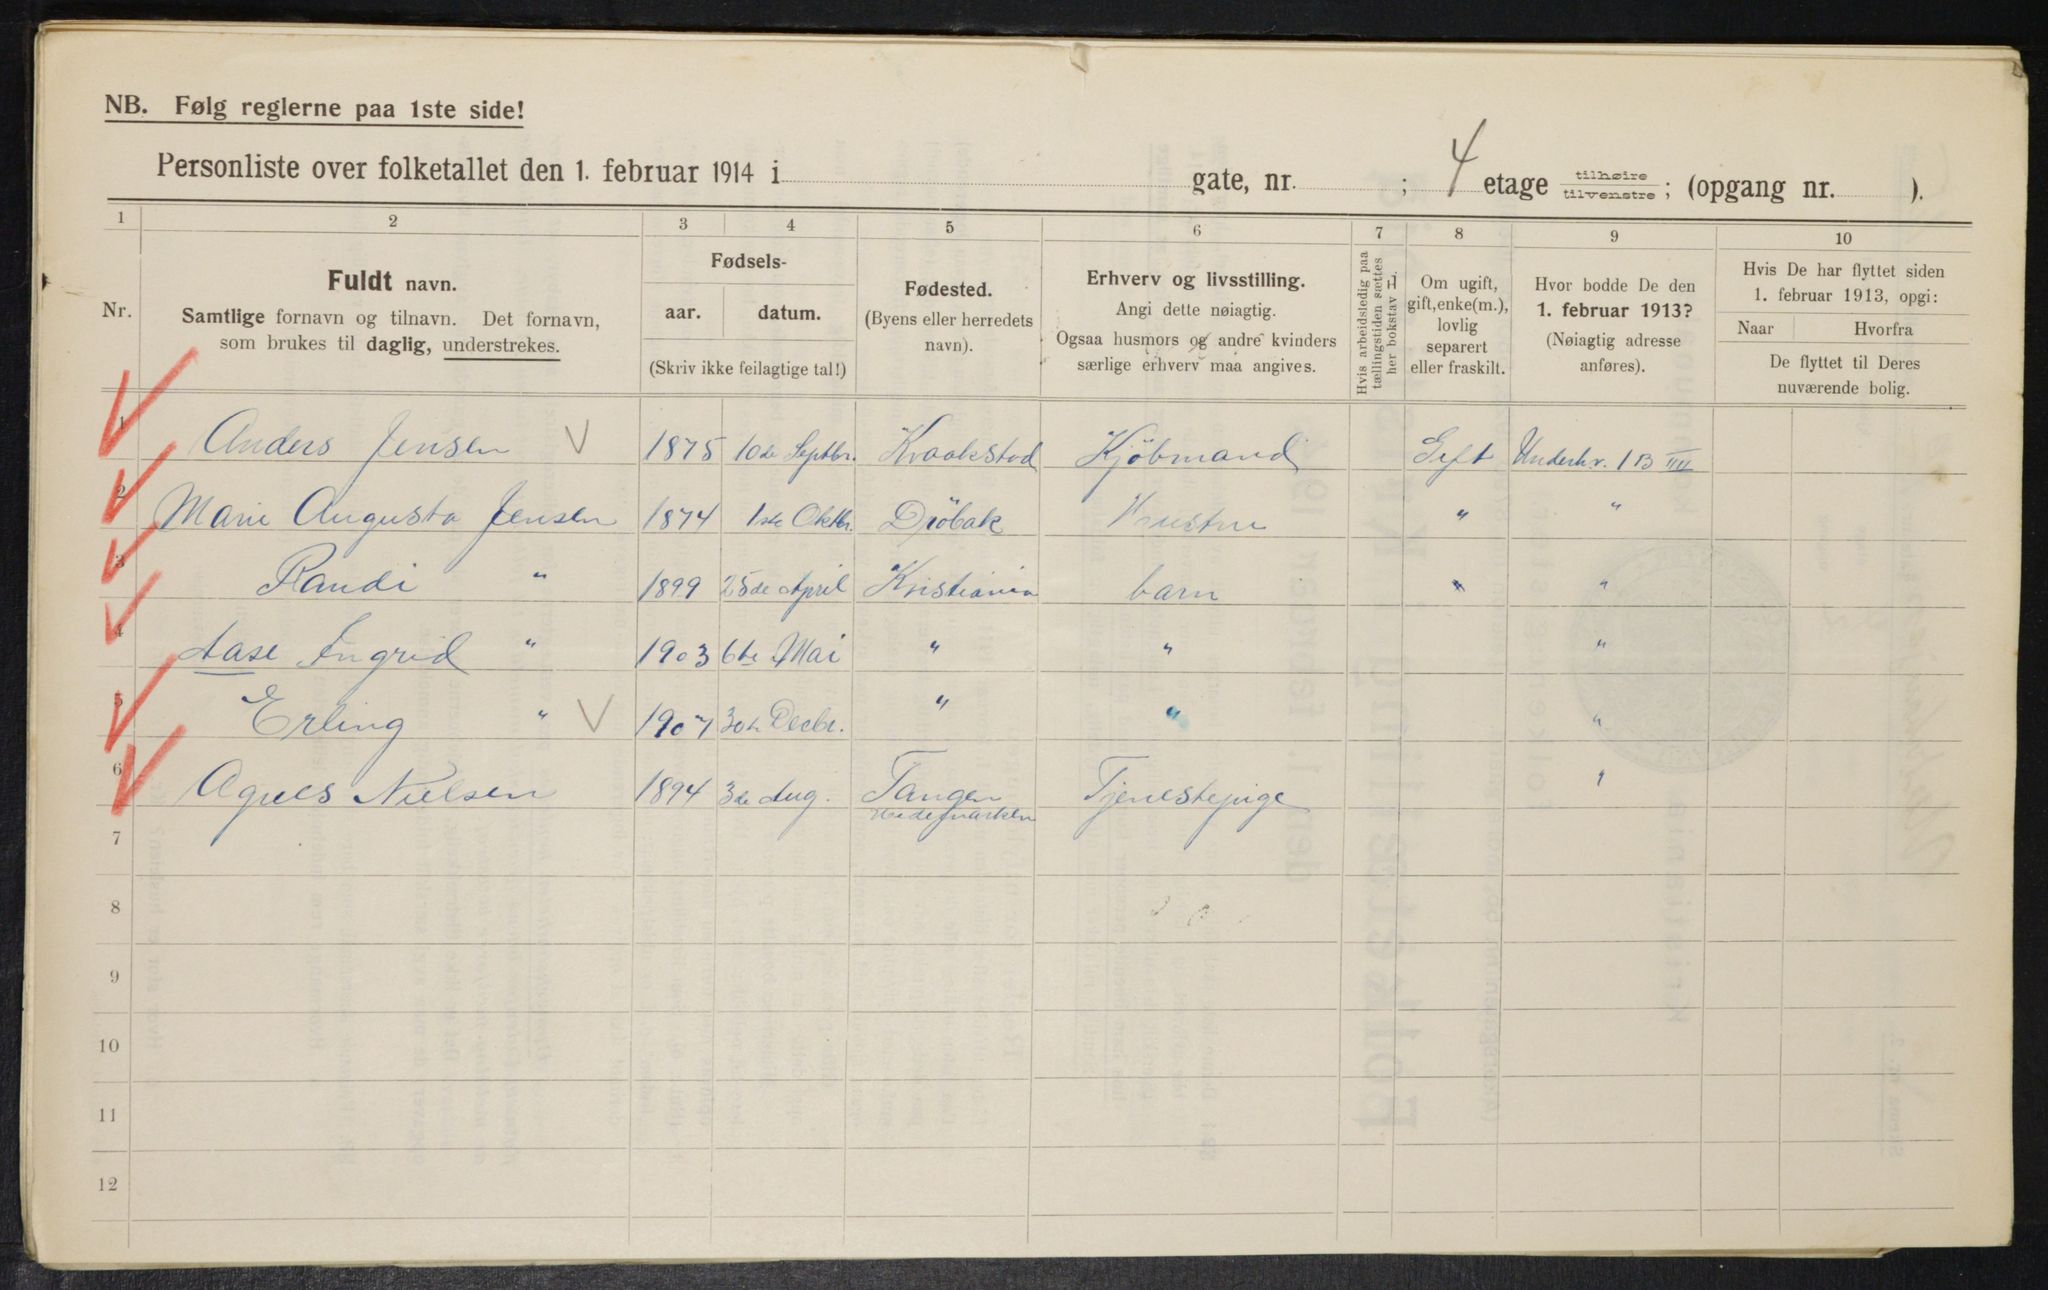 NB. Følg reglerne paa 1ste side!
Personliste over folketallet den 1. februar 1914 i gate, nr. ; 4 etage tilhøire tilvenstre ; (opgang nr. ).
1 2 3 4 5 6 7 8 9 10
Nr.
Fuldt navn.
Samtlige fornavn og tilnavn. Det fornavn,
som brukes til daglig, understrekes.
Fødsels-
aar. datum.
(Skriv ikke feilagtige tal!)
Fødested.
(Byens eller herredets
navn).
Erhverv og livsstilling.
Angi dette nøiagtig.
Ogsaa husmors og andre kvinders
særlige erhverv maa angives.
Hvis arbeidsledig paa
tællingstiden sættes
her bokstav L.
Om ugift,
gift, enke(m.),
lovlig
separert
eller fraskilt.
Hvor bodde De den
1. februar 1913?
(Nøiagtig adresse
anføres).
Hvis De har flyttet siden
1. februar 1913, opgi:
Naar Hvorfra
De flyttet til Deres
nuværende bolig.
1 Anders Jensen V 1875 10de Septbr. Kraakstad Kjöbmand Gift Underhv. 1 B IIII
2 Marie Augusta Jensen 1874 1ste Oktbr. Dröbak Hustru " "
3 Randi " 1899 25de April Kristiania barn " "
4 Aase Ingrid " 1903 6te Mai " " "
5 Erling " V 1907 30te Decbr. " " "
6 Agnes Nielsen 1894 3de Aug. Tangen Tjenestepige "
Hedemarken
7
8
9
10
11
12